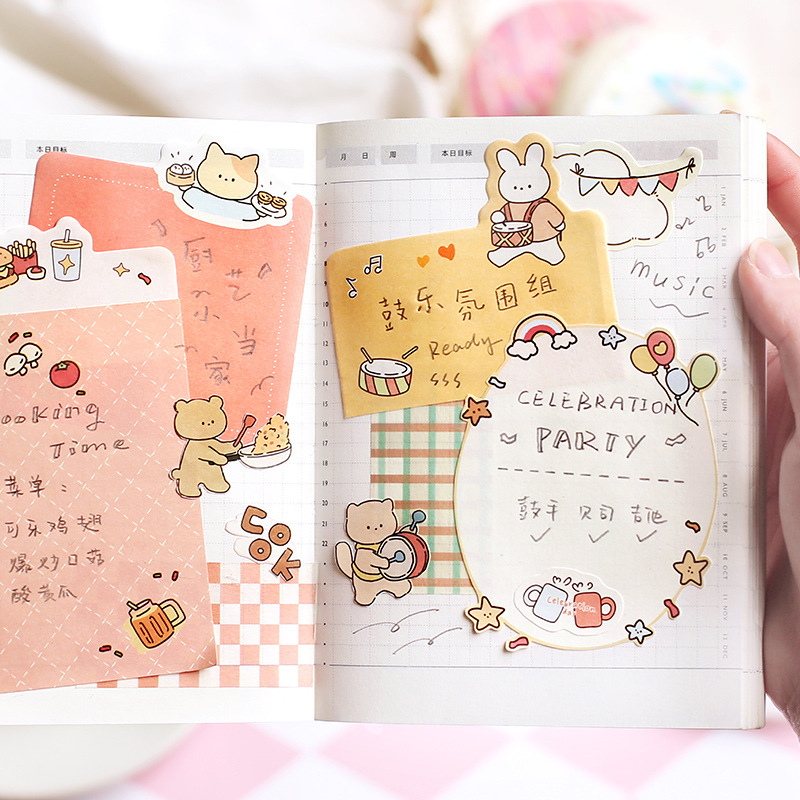 本日目标
厨艺
小当
家
ooking
Time
菜单：
可乐鸡翅
爆炒口菇
酸黄瓜
COOK
月 日 周 本日目标
music
鼓乐氛围组
Ready
CELEBRATION
PARTY
鼓手 贝司 吉他
Celebration
7
8
9
10
11
12
13
14
15
16
17
18
19
20
21
22
1 JAN
2 FEB
3 MAR
4 APR
5 MAY
6 JUN
7 JUL
8 AUG
9 SEP
10 OCT
11 NOV
12 DEC